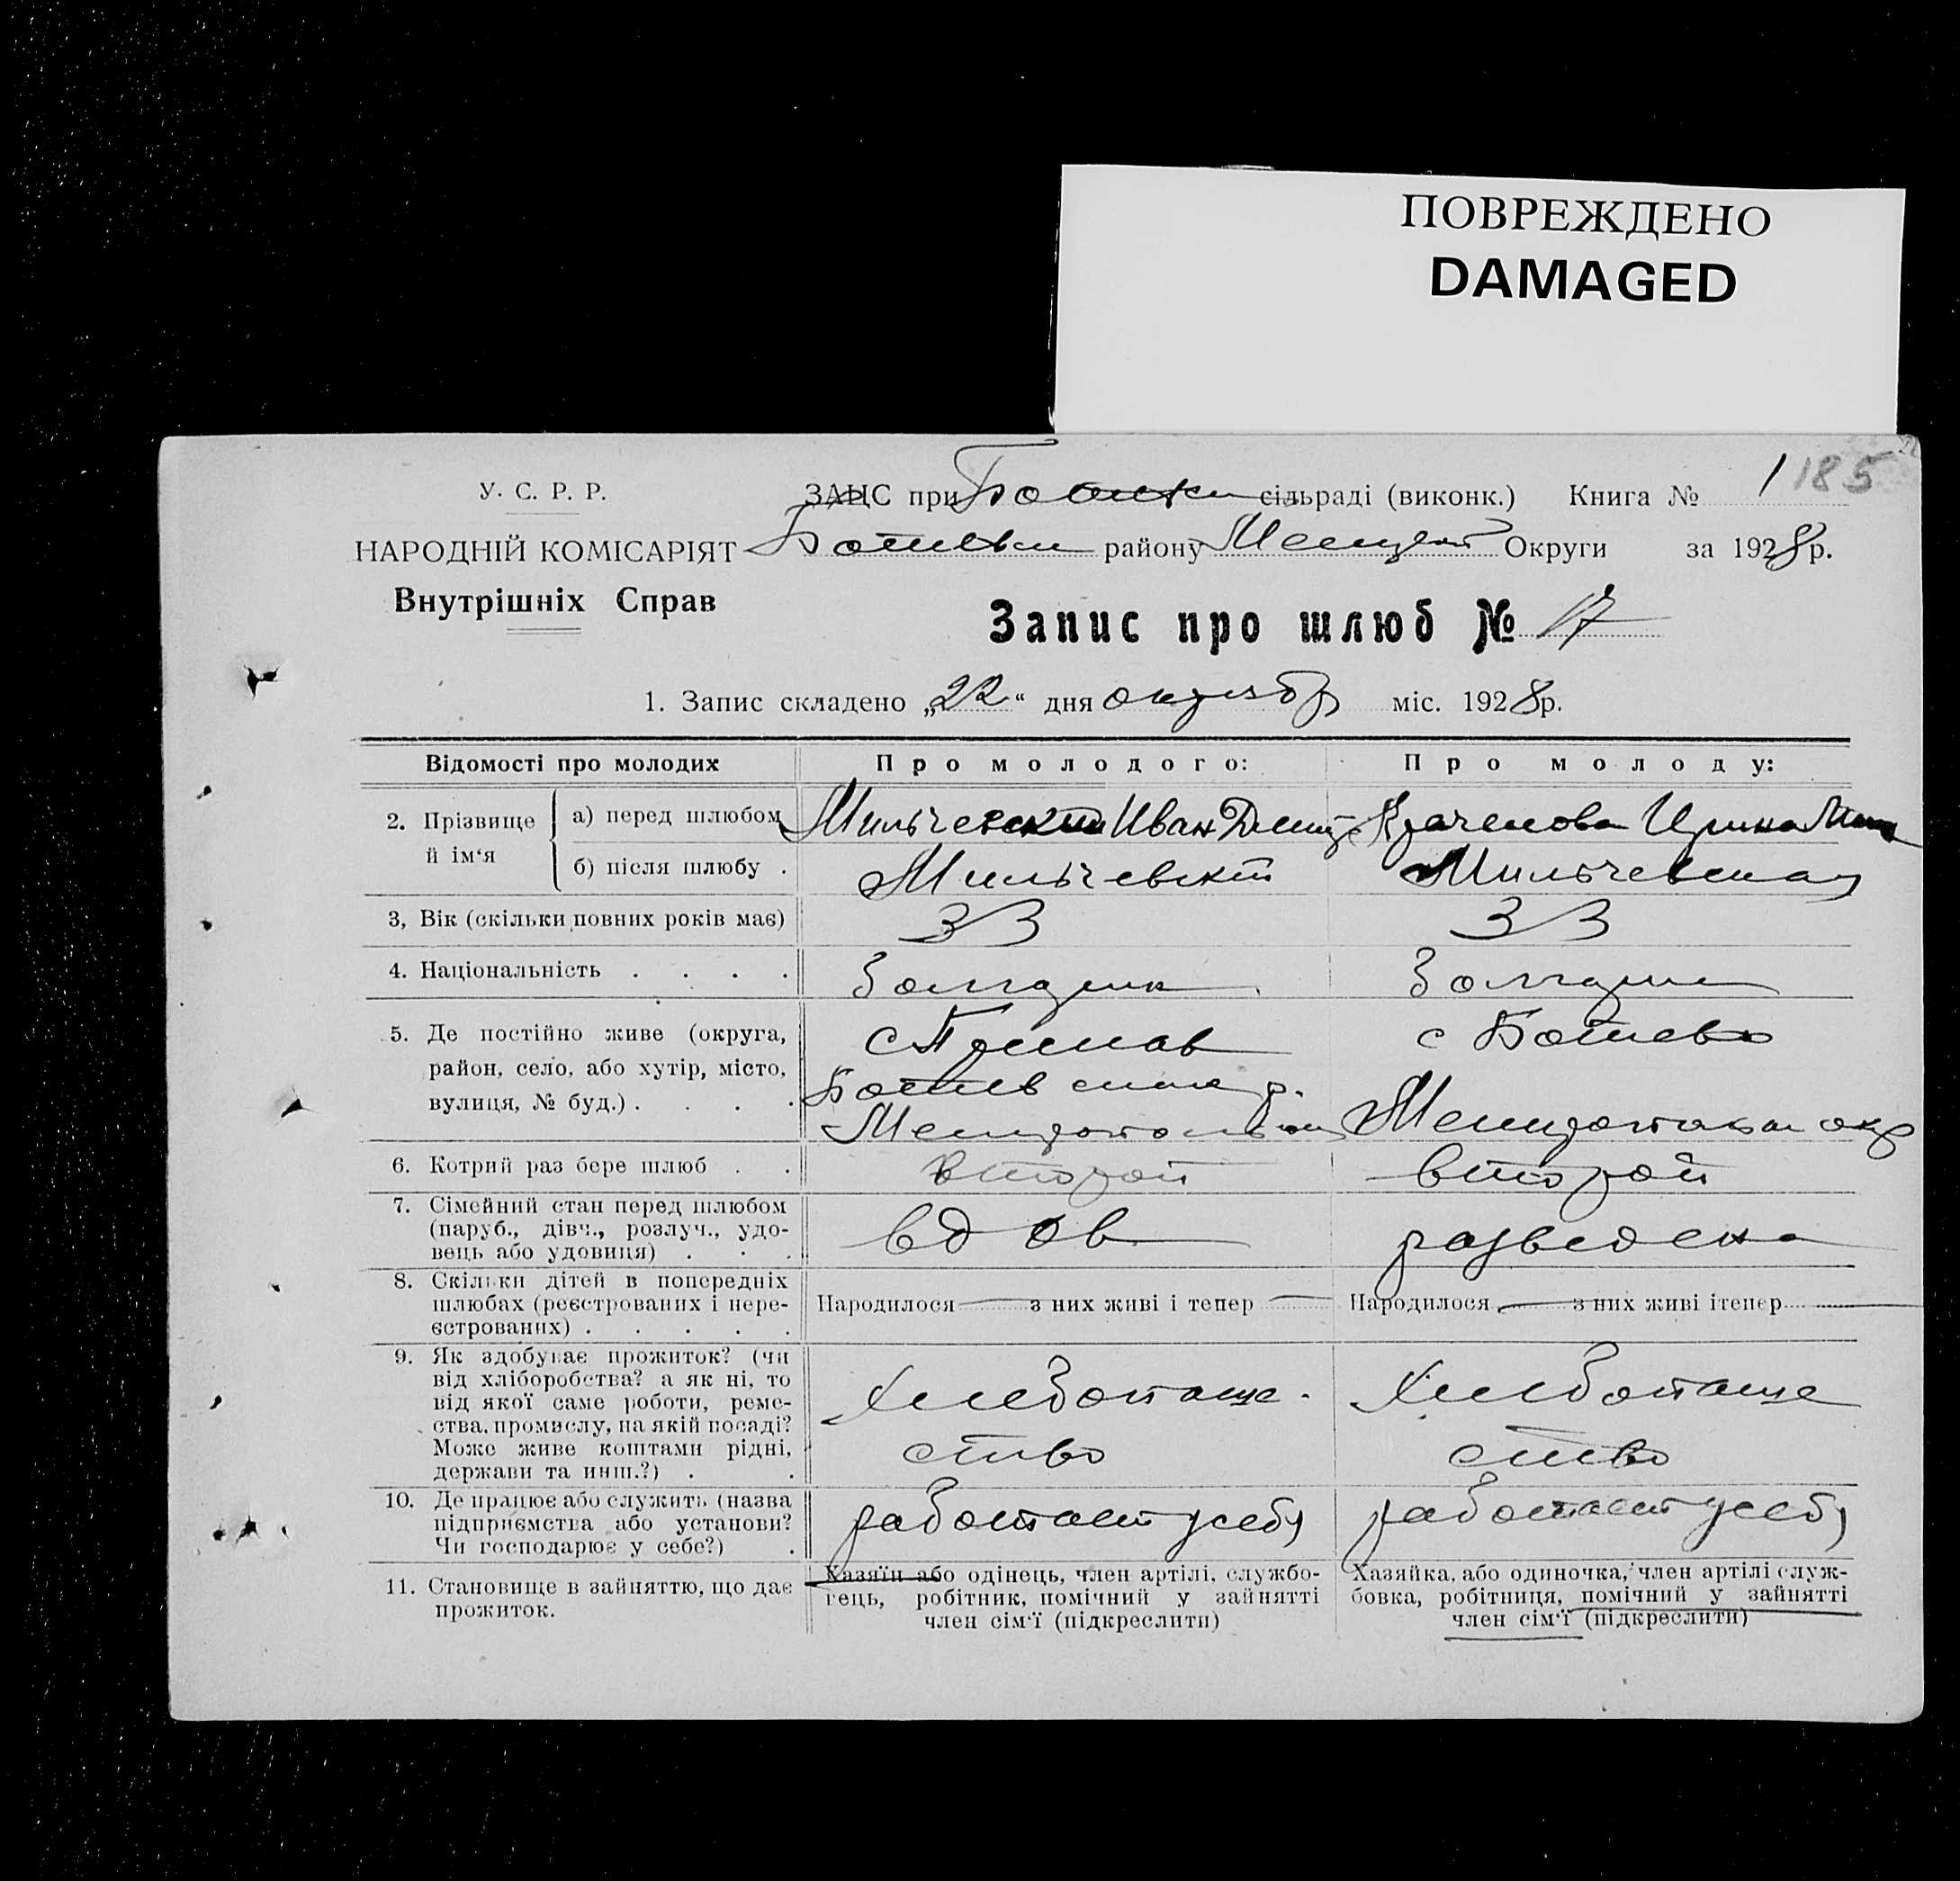 ПОВРЕЖДЕНО
DAMAGED
185
У. С. Р. Р.
НАРОДНІЙ КОМІСАРІЯТ
Внутрішніх Справ
ЗАЦС при сільраді (виконк.) Книга № 1
району Округи за 1928 р.
Запис про шлюб № 17
1. Запис складено „22“ дня октябр міс. 1928 р.
Відомості про молодих Про молодого: Про молоду:
2. Прізвище й ім‘я
а) перед шлюбом Мильчевский Иван Ирина
б) після шлюбу . Мильчевский Мильчевская
3, Вік (скільки повних років має) 33 33
4. Національність . . . . болгарин болгарка
5. Де постійно живе (округа, район, село, або хутір, місто, вулиця, № буд.) . . . .
с Ботиево
6. Котрий раз бере шлюб . . второй второй
7. Сімейний стан перед шлюбом (паруб., дівч., розлуч., удовець або удовиця) . . . вдов разведена
8. Скільки дітей в попередніх шлюбах (реєстрованих і нереєстрованих) . . . . .
Народилося з них живі і тепер Народилося з них живі і тепер
9. Як здобуває прожиток? (чи від хліборобства? а як ні, то від якої саме роботи, ремества, промислу, на якій посаді? Може живе коштами рідні, держави та инш.?) . .
Хлебопаше- Хлебопаше
ство ство
10. Де працює або служить (назва підприємства або установи? Чи господарює у себе?) .
работает у себя работает у себя
11. Становище в зайняттю, що дає прожиток.
Хазяїн або одінець, член артілі, службовець, робітник, помічний у зайнятті член сім‘ї (підкреслити)
Хазяйка, або одиночка, член артілі службовка, робітниця, помічний у зайнятті член сім‘ї (підкреслити)